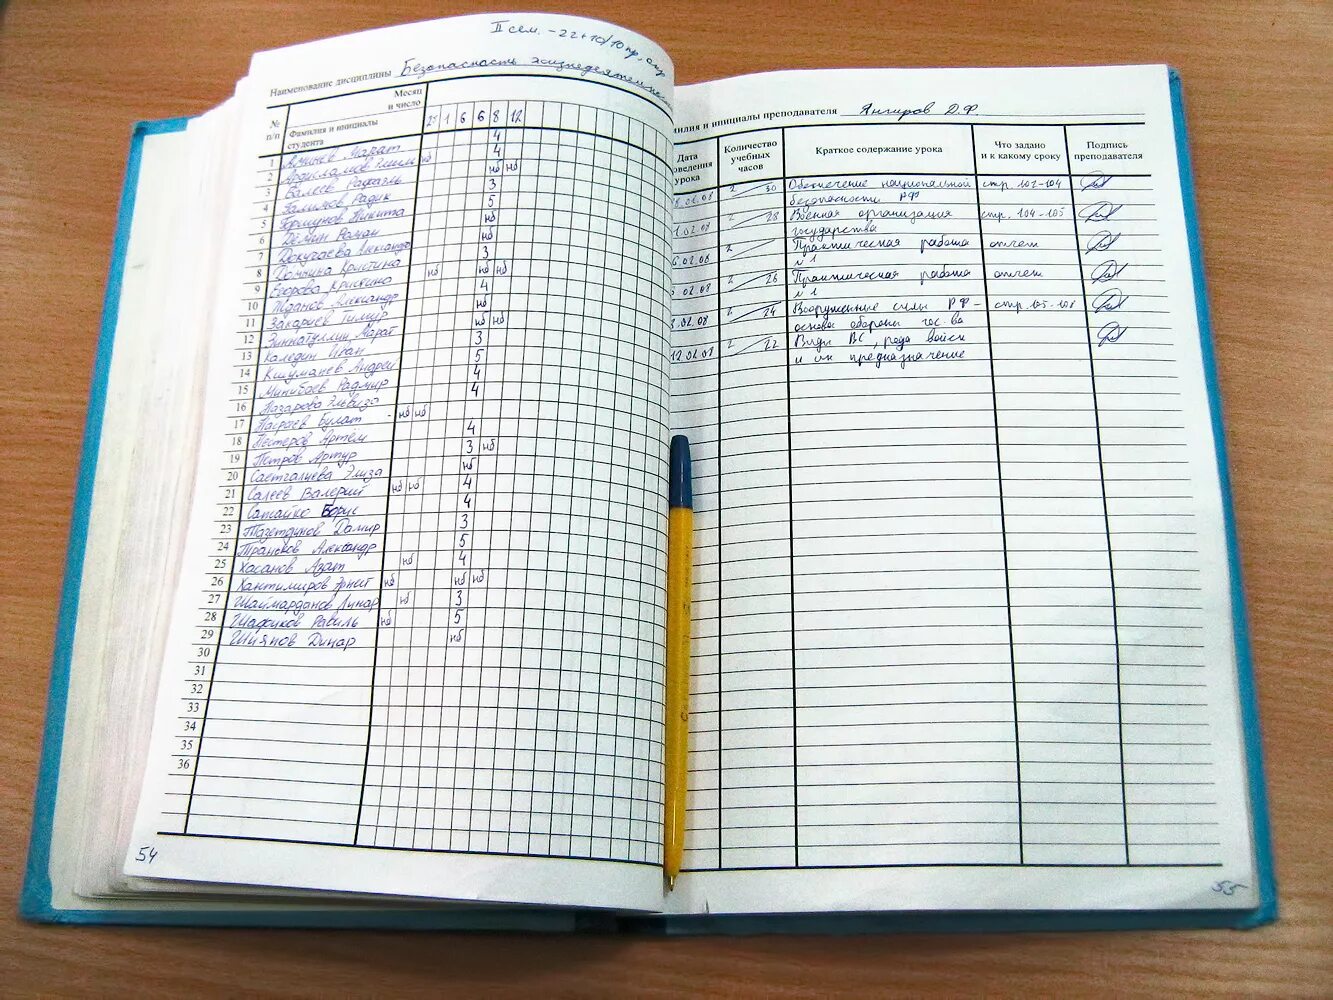 II сем. - 22+10/10 пр.
Наименование дисциплины Безопасность жизнедеятельнос
№ п/п
Фамилия и инициалы студента
Месяц и число
1 6 6 8 12
1 Аминев Марат 4
2 Ардисламов нб 4
3 Валеев Рафаэль нб нб
4 Галимов Радик 3
5 Горшунов Никита 5
6 Дёмин Роман нб
7 Докучаева Александра нб
8 Домнина Кристина 3
9 Егорова Кристина нб нб нб
10 Жданов Александр 4
11 Закариев Тимур нб
12 Зиннатуллин Марат нб нб
13 Каледин Иван 3
14 Андрей 5
15 Минибаев Радмир 4
16 Назарова Эльвиза 4
17 Нагаев Булат - нб нб
18 Нестеров Артём 4
19 Петров Артур 3 нб
20 Саетгалиева Элиза нб
21 Салеев Валерий нб нб 4
22 Сатайко Борис 4
23 Тазетдинов Дамир 3
24 Траньков Александр 5
25 Хасанов Азат нб 4
26 Хантимиров Эрнст нб нб нб
27 Шаймарданов Линар нб 3
28 Шафиков Равиль нб 5
29 Шиянов Динар нб
30
31
32
33
34
35
36
54
милия и инициалы преподавателя Янгиров Д.Ф.
Дата
оведения
урока
Количество
учебных
часов
Краткое содержание урока
Что задано
и к какому сроку
Подпись
преподавателя
.01.08 2 30 Обеспечение национальной стр. 102-104
безопасности РФ
1.02.08 2 28 Военная организация стр. 104-105
государства
6.02.08 2 Практическая работа отчет
№1
6.02.08 2 26 Практическая работа отчет
№1
8.02.08 2 24 Вооруженные силы РФ - стр. 105-108
основа обороны гос-ва
12.02.08 2 22 Виды ВС, рода войск
и их предназначение
55